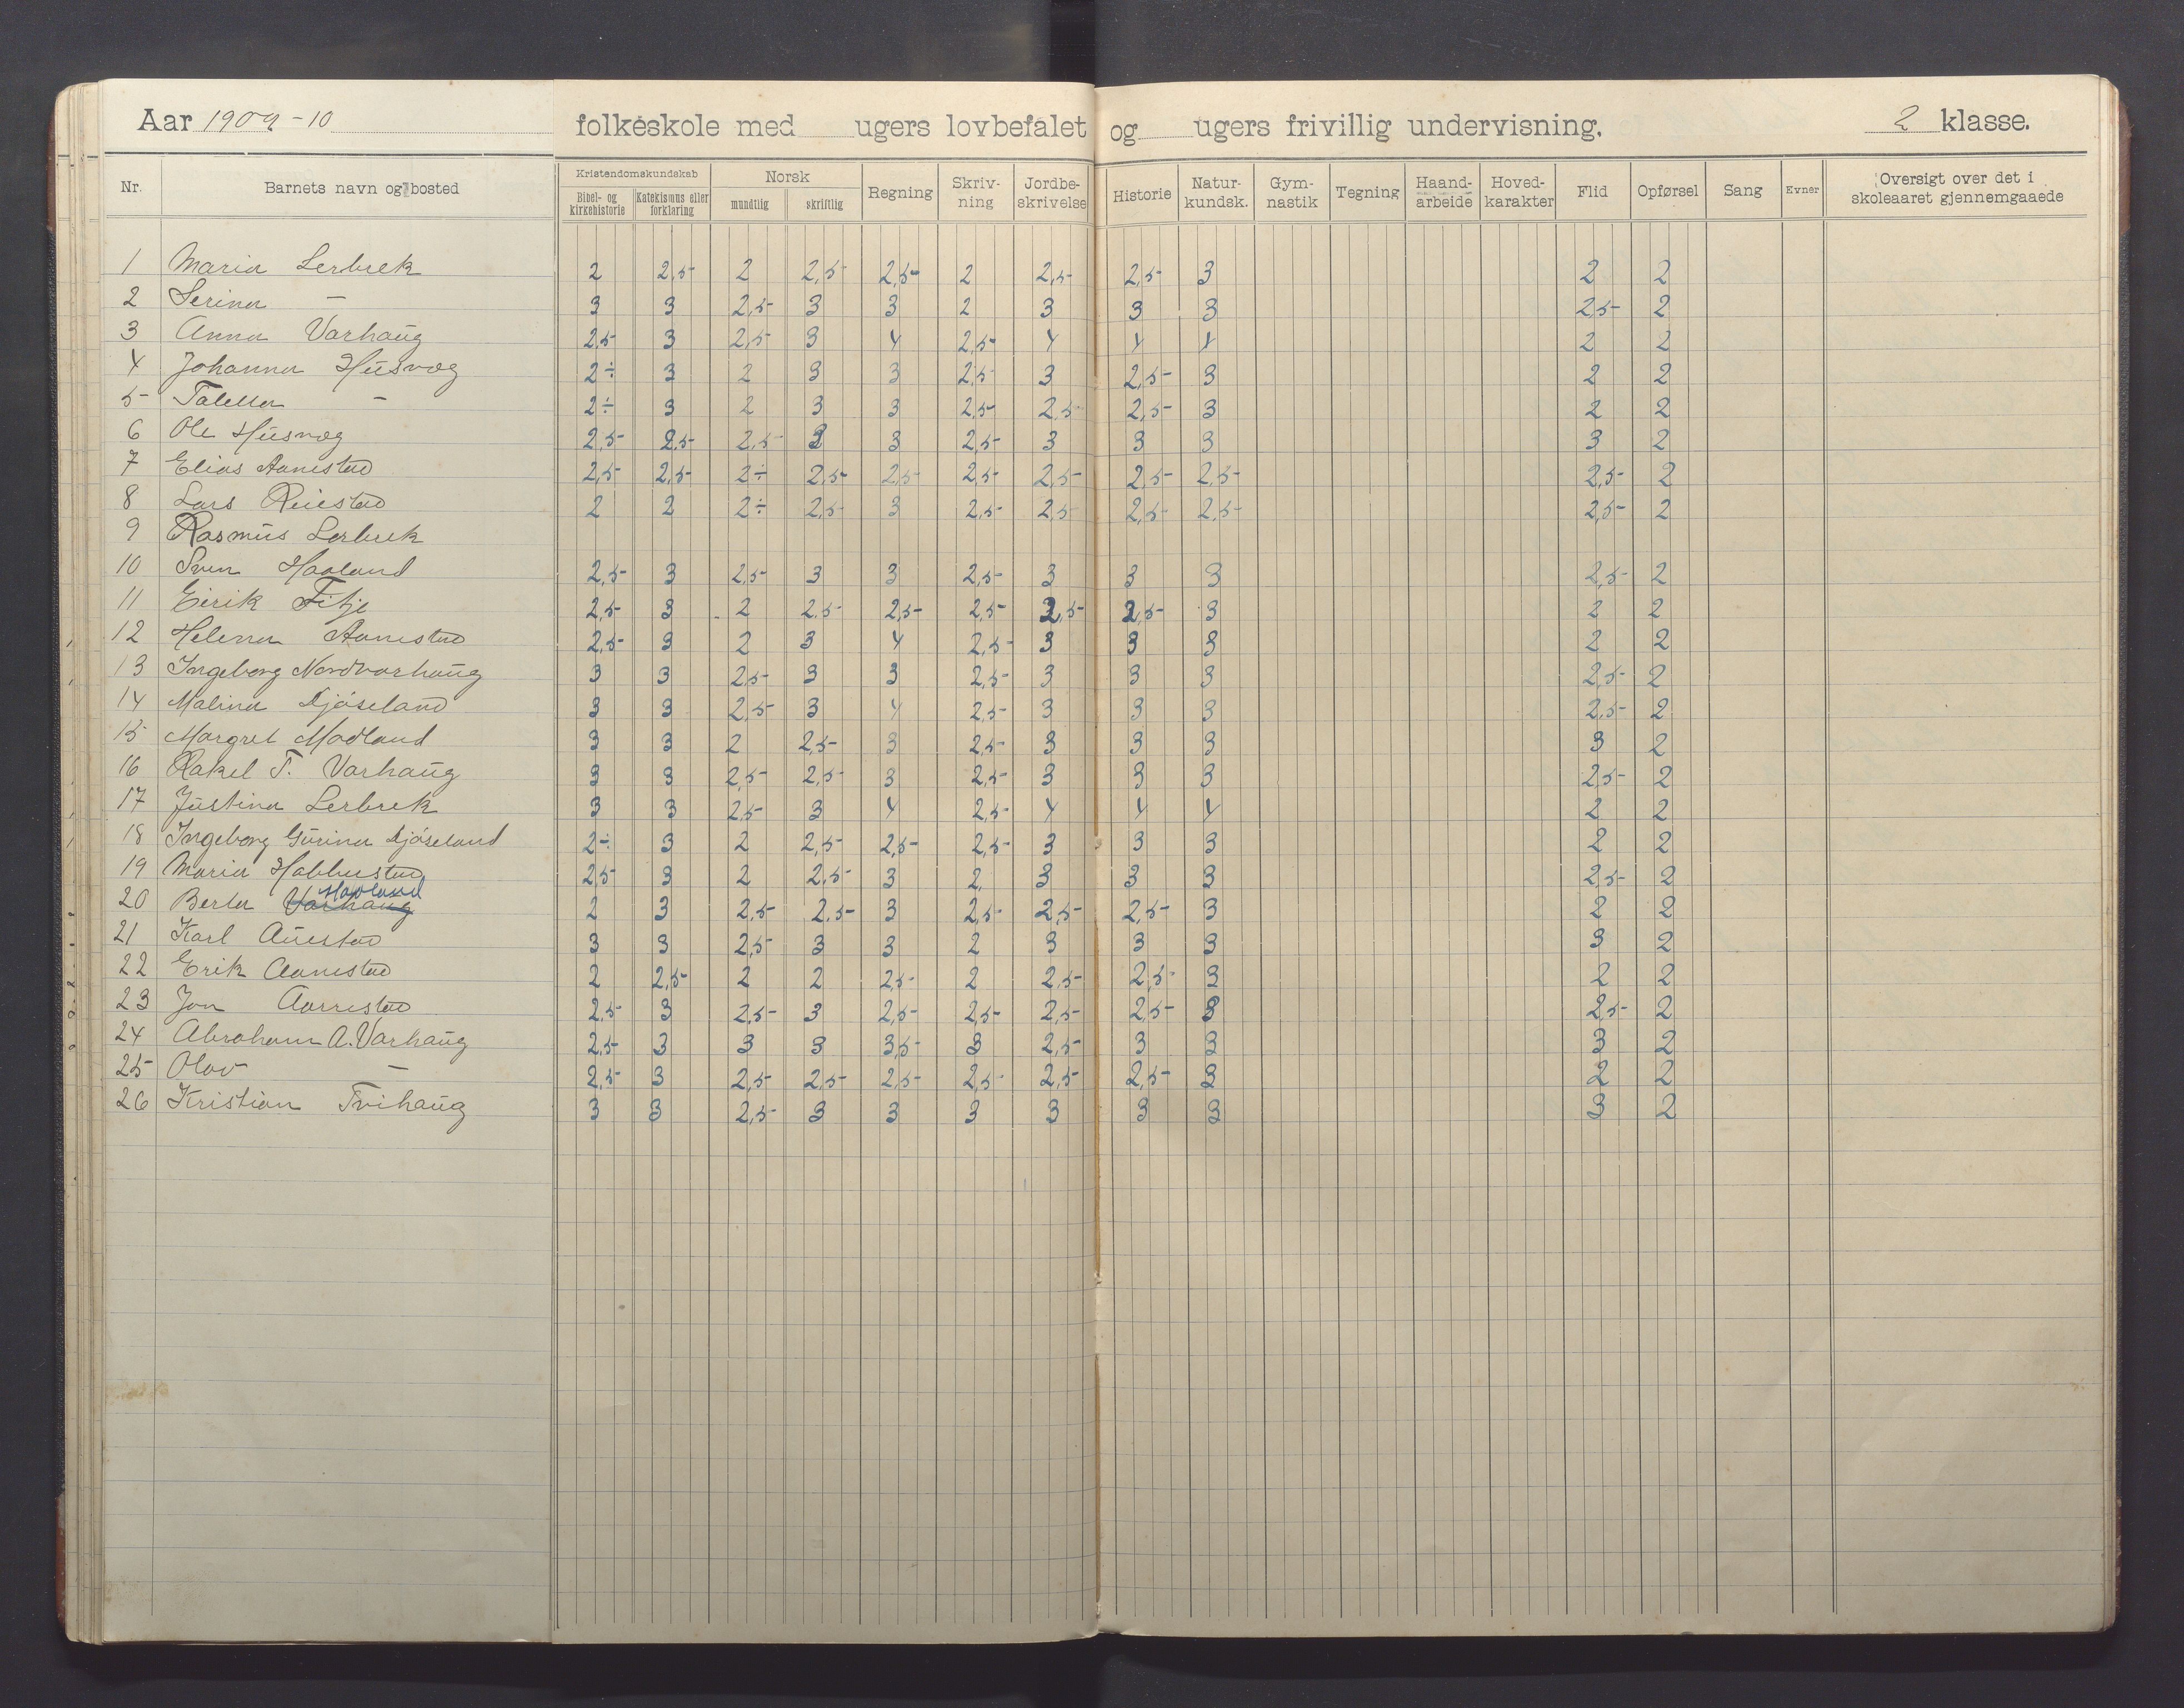 Aar 1909-10 folkeskole med ugers lovbefalet og ugers frivillig undervisning. 2 klasse.
Nr. Barnets navn og bosted Kristendomskundskab Bibel- og kirkehistorie Katekismus eller forklaring Norsk mundtlig skriftlig Regning Skriv-ning Jordbe-skrivelse Historie Natur-kundsk. Gym-nastik Tegning Haand-arbeide Hoved-karakter Flid Opførsel Sang Evner Oversigt over det i skoleaaret gjennemgaaede
1 Maria Lerbrek 2 2,5 2 2,5 2,5 2 2,5 2,5 3 2 2
2 Serina — 3 3 2,5 3 3 2 3 3 3 2,5 2
3 Anna Varhaug 2,5 3 2,5 3 4 2,5 4 4 4 2 2
4 Johanna Husvæg 2÷ 3 2 3 3 2,5 3 2,5 3 2 2
5 — 2÷ 3 2 3 3 2,5 2,5 2,5 3 2 2
6 Ole Husvæg 2,5 2,5 2,5 3 3 2,5 3 3 3 3 2
7 Elias Aanestad 2,5 2,5 2÷ 2,5 2,5 2,5 2,5 2,5 2,5 2,5 2
8 Lars 2 2 2÷ 2,5 3 2,5 2,5 2,5 2,5 2,5 2
9 Rasmus Lerbrek
10 Sven Haaland 2,5 3 2,5 3 3 2,5 3 3 3 2,5 2
11 Eirik Fitje 2,5 3 2 2,5 2,5 2,5 2,5 2,5 3 2 2
12 Helena Aanestad 2,5 3 2 3 4 2,5 3 3 3 2 2
13 Ingeborg Nordvarhaug 3 3 2,5 3 3 2,5 3 3 3 2,5 2
14 Malina Djøseland 3 3 2,5 3 4 2,5 3 3 3 2,5 2
15 Margret Madland 3 3 2 2,5 3 2,5 3 3 3 3 2
16 Rakel T. Varhaug 3 3 2,5 2,5 3 2,5 3 3 3 2,5 2
17 Justina Lerbrek 3 3 2,5 3 4 2,5 4 4 4 2 2
18 Ingeborg Gurina Djøseland 2÷ 3 2 2,5 2,5 2,5 3 3 3 2 2
19 Maria 2,5 3 2 2,5 3 2 3 3 3 2,5 2
Haaland
20 Berta Varhaug 2 3 2,5 2,5 3 2,5 2,5 2,5 3 2 2
21 Karl Auestad 3 3 2,5 3 3 2 3 3 3 3 2
22 Erik Aanestad 2 2,5 2 2 2,5 2 2,5 2,5 3 2 2
23 Jon Aarrestad 2,5 3 2,5 3 2,5 2,5 2,5 2,5 3 2,5 2
24 Abraham A. Varhaug 2,5 3 3 3 3,5 3 2,5 3 3 3 2
25 Olav — 2,5 3 2,5 2,5 2,5 2,5 2,5 2,5 3 2 2
26 Kristian Tvihaug 3 3 2,5 3 3 3 3 3 3 3 2